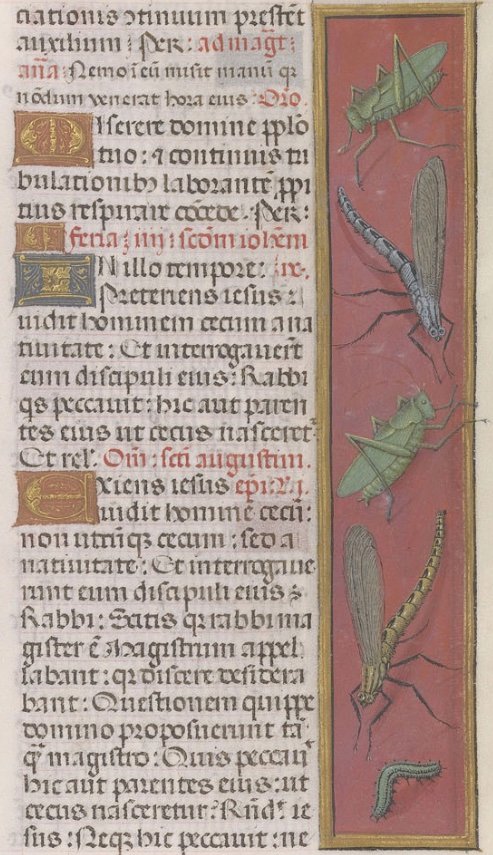 nationis ↄtinuum prestēt
auxilium : Per : ad mag̃t :
aña : Nemo ī eū misit manū qr
nōdum venerat hora eius : Or̃o.
Miserere domine pplo
tuo : ⁊ continuis tri
bulationibꝰ laborantē ppi
tius respirare cōcede . Per :
feria : iiij : scdm iohem
In illo tempore : : re .
Preteriens iesus :
uidit hominem cecum a na
tiuitate : Et interrogauerūt
eum discipuli eius : Rabbi
qs peccauit : hic aut paren
tes eius ut cecus nasceret
Et rel . Om̃ : scti augustini .
Exiens iesus epi : .
uidit hominē cecū :
non utrūqꝫ cecum : sed a
natiuitate : Et interrogaue
runt eum discipuli eius :
Rabbi : Scatis qr rabbi ma
gister ē Magistrum appel
labant : qr discere desidera
bant : Questionem quippe
domino proposuerunt tā
q̄ magistro : Quis peccauit
hic aut parentes eius : ut
cecus nasceretur : Rñd't ie
sus : Neqꝫ hic peccauit : ne